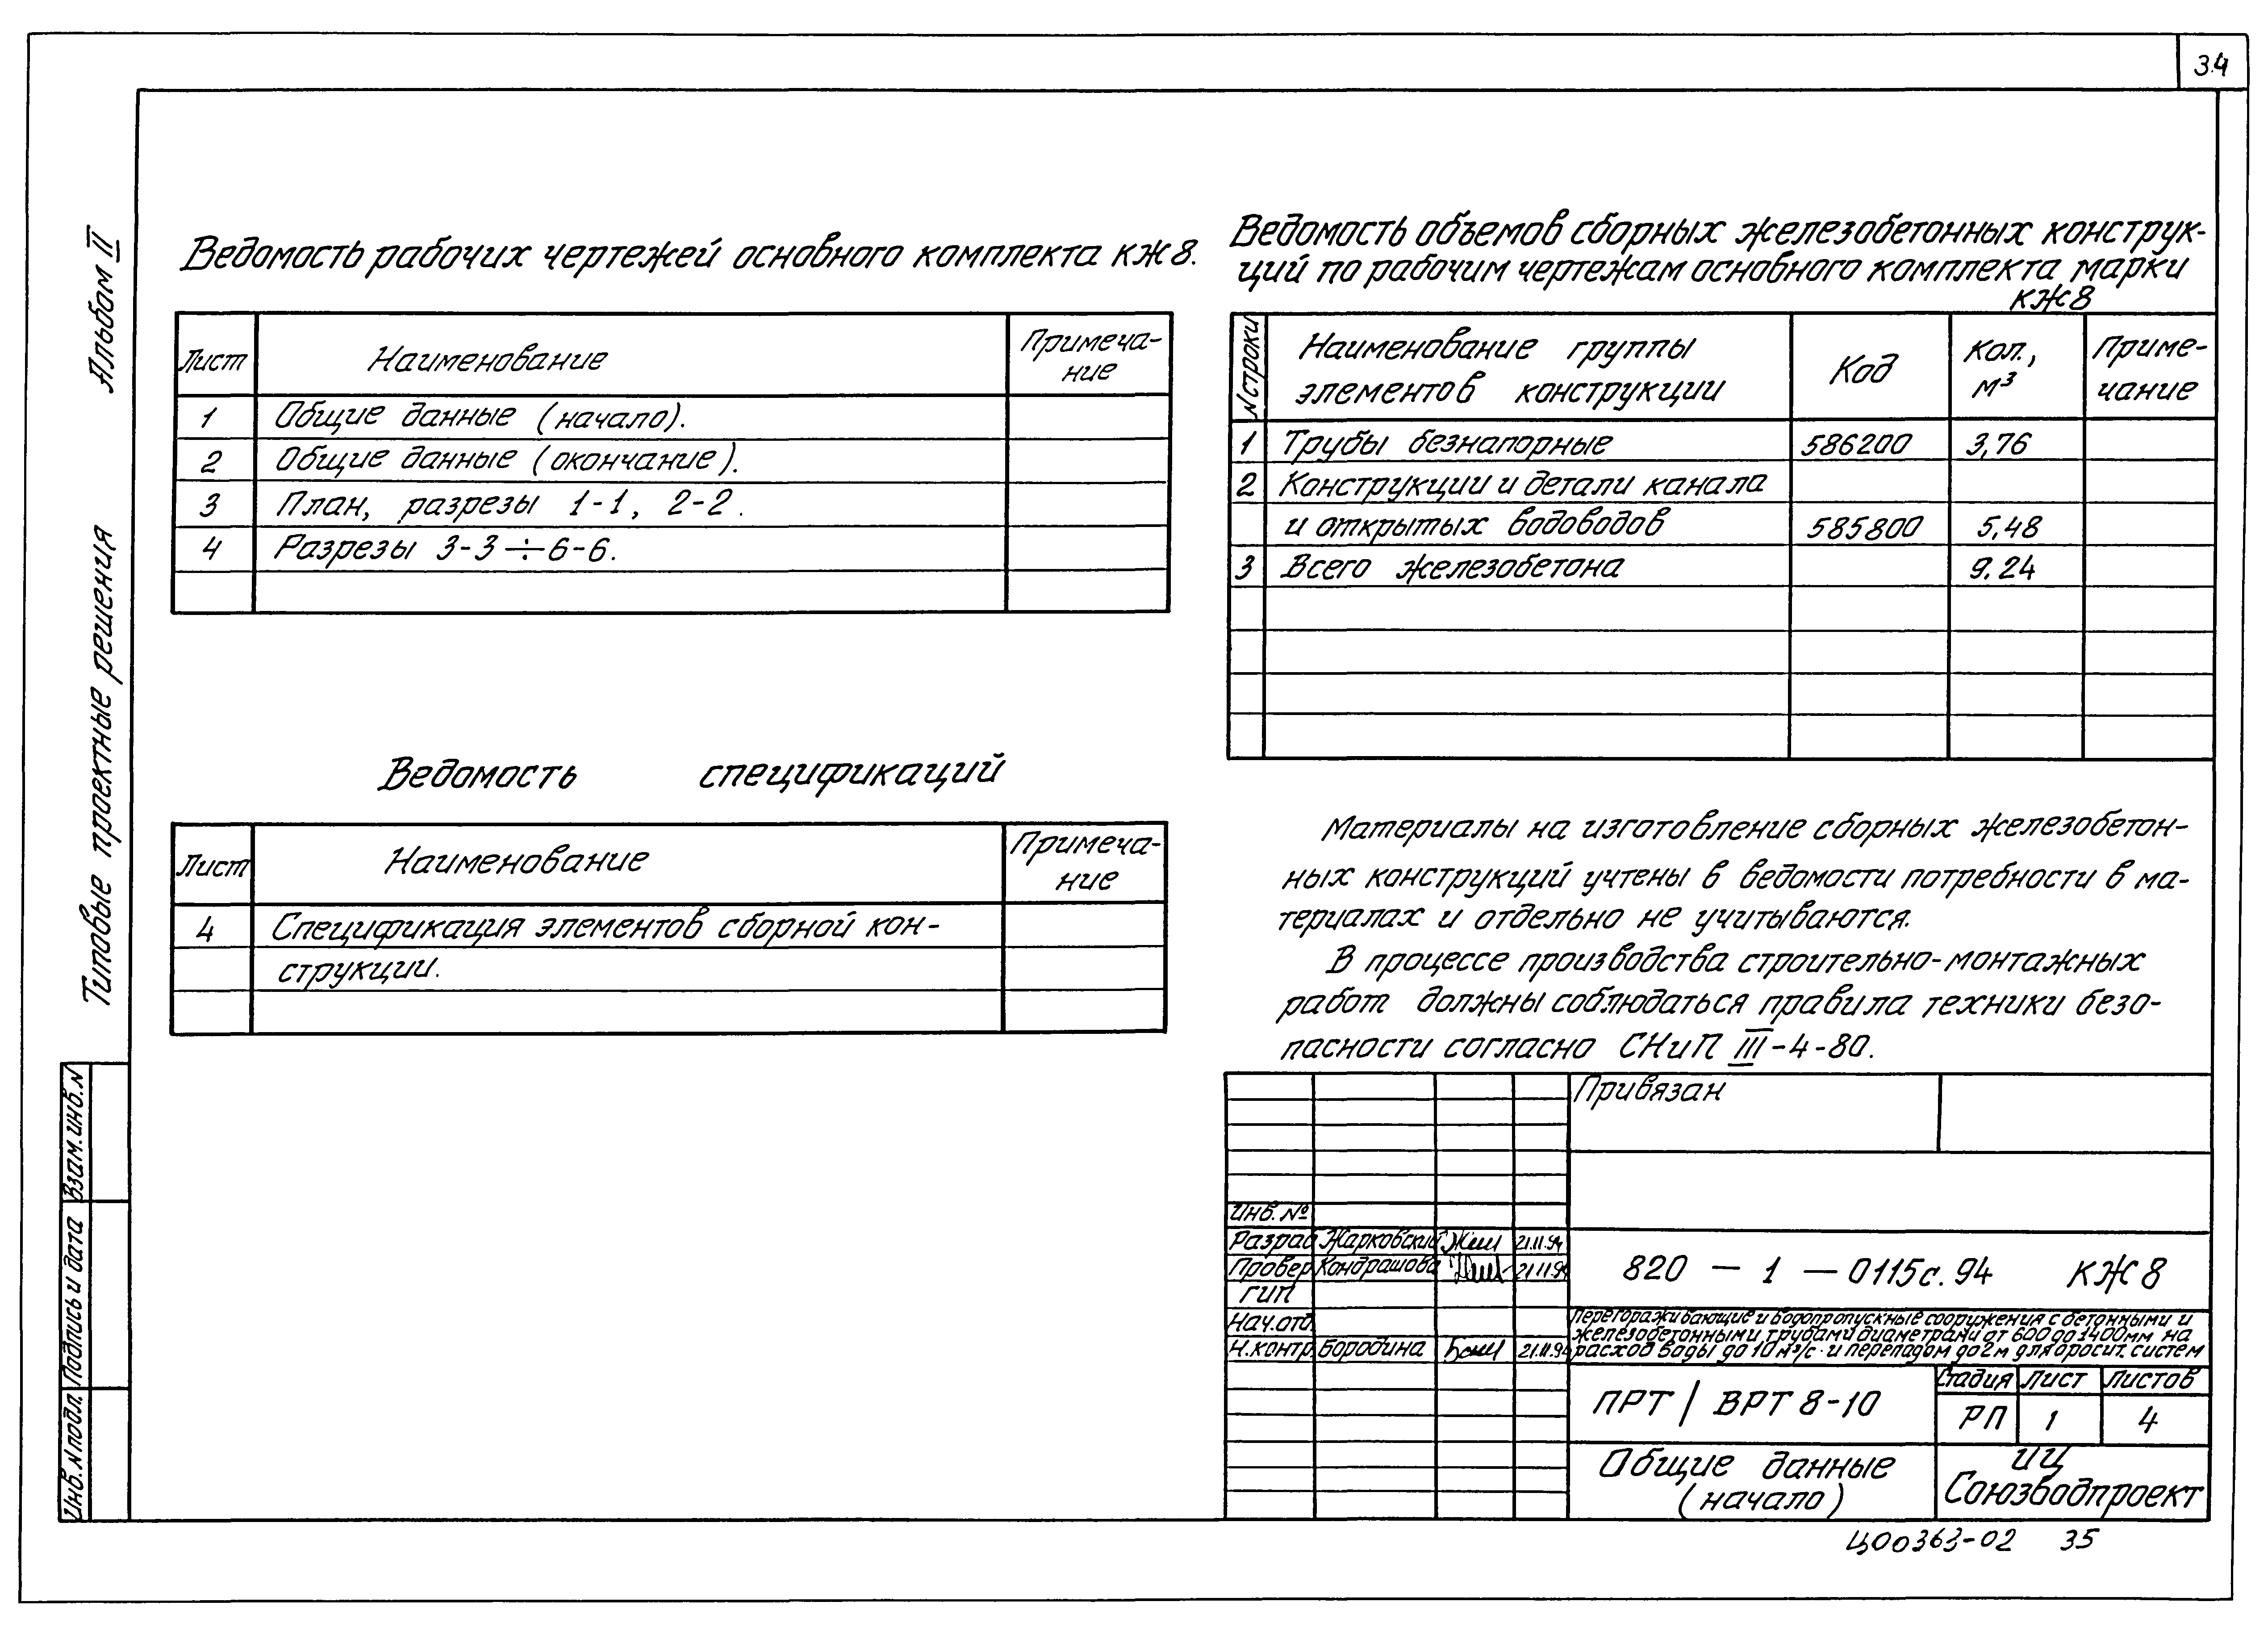 34
Альбом II
Типовые проектные решения
Взам.инв.N
Подпись и дата
Инв.N подл.
Ведомость рабочих чертежей основного комплекта КЖ8.
Лист Наименование Примеча-
ние
1 Общие данные (начало).
2 Общие данные (окончание).
3 План, разрезы 1-1, 2-2.
4 Разрезы 3-3÷6-6.
Ведомость спецификаций
Лист Наименование Примеча-
ние
4 Спецификация элементов сборной кон-
струкции.
Ведомость объемов сборных железобетонных конструк-
ций по рабочим чертежам основного комплекта марки
КЖ8
N строки Наименование группы
элементов конструкции Код Кол.,
м³ Приме-
чание
1 Трубы безнапорные 586200 3,76
2 Конструкции и детали канала
и открытых водоводов 585800 5,48
3 Всего железобетона 9.24
Материалы на изготовление сборных железобетон-
ных конструкций учтены в ведомости потребности в ма-
териалах и отдельно не учитываются.
В процессе производства строительно-монтажных
работ должны соблюдаться правила техники безо-
пасности согласно СНиП III-4-80.
Привязан
Инв. №
Разраб Жарковский 21.11.94
Провер Кондрашова 21.11.94
ГИП
Нач.отд.
Н.контр. Бородина 21.11.94
820 — 1 — 0115с.94 КЖ8
Перегораживающие и водопропускные сооружения с бетонными и
железобетонными трубами диаметрами от 600 до 1400мм на
расход воды до 10 м³/с и перепадом до 2м для оросит. систем
ПРТ / ВРТ 8-10
Стадия Лист Листов
РП 1 4
Общие данные
(начало)
ИЦ
Союзводпроект
Ц00363-02 35